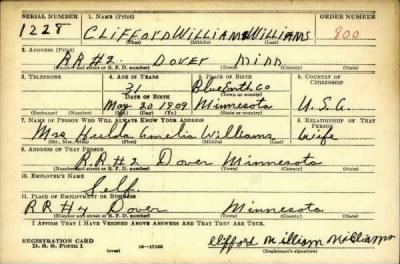 SERIAL NUMBER 1. NAME (Print) ORDER NUMBER
1228 CLIFFORD WILLIAM WILLIAMS 800
(First) (Middle) (Last)
2. ADDRESS (Print)
R.R.#2. DOVER MINN
(Number and street or R. F. D. number) (Town) (County) (State)
3. TELEPHONE 4. AGE IN YEARS 5. PLACE OF BIRTH 6. COUNTRY OF CITIZENSHIP
31 Blue Earth Co
DATE OF BIRTH (Town or county)
May 20 1909 Minnesota U.S.A.
(Exchange) (Number) (Mo.) (Day) (Yr.) (State or country)
7. NAME OF PERSON WHO WILL ALWAYS KNOW YOUR ADDRESS 8. RELATIONSHIP OF THAT PERSON
Mrs Hulda Amelia Williams Wife
(Mr., Mrs., Miss) (First) (Middle) (Last)
9. ADDRESS OF THAT PERSON
R.R.#2 Dover Minnesota
(Number and street or R. F. D. number) (Town) (County) (State)
10. EMPLOYER'S NAME
Self
11. PLACE OF EMPLOYMENT OR BUSINESS
RR#4 Dover Minnesota
(Number and street or R. F. D. number) (Town) (County) (State)
I AFFIRM THAT I HAVE VERIFIED ABOVE ANSWERS AND THAT THEY ARE TRUE.
REGISTRATION CARD
D. S. S. FORM 1 (over) 16-17105 Clifford William Williams
(Registrant's signature)